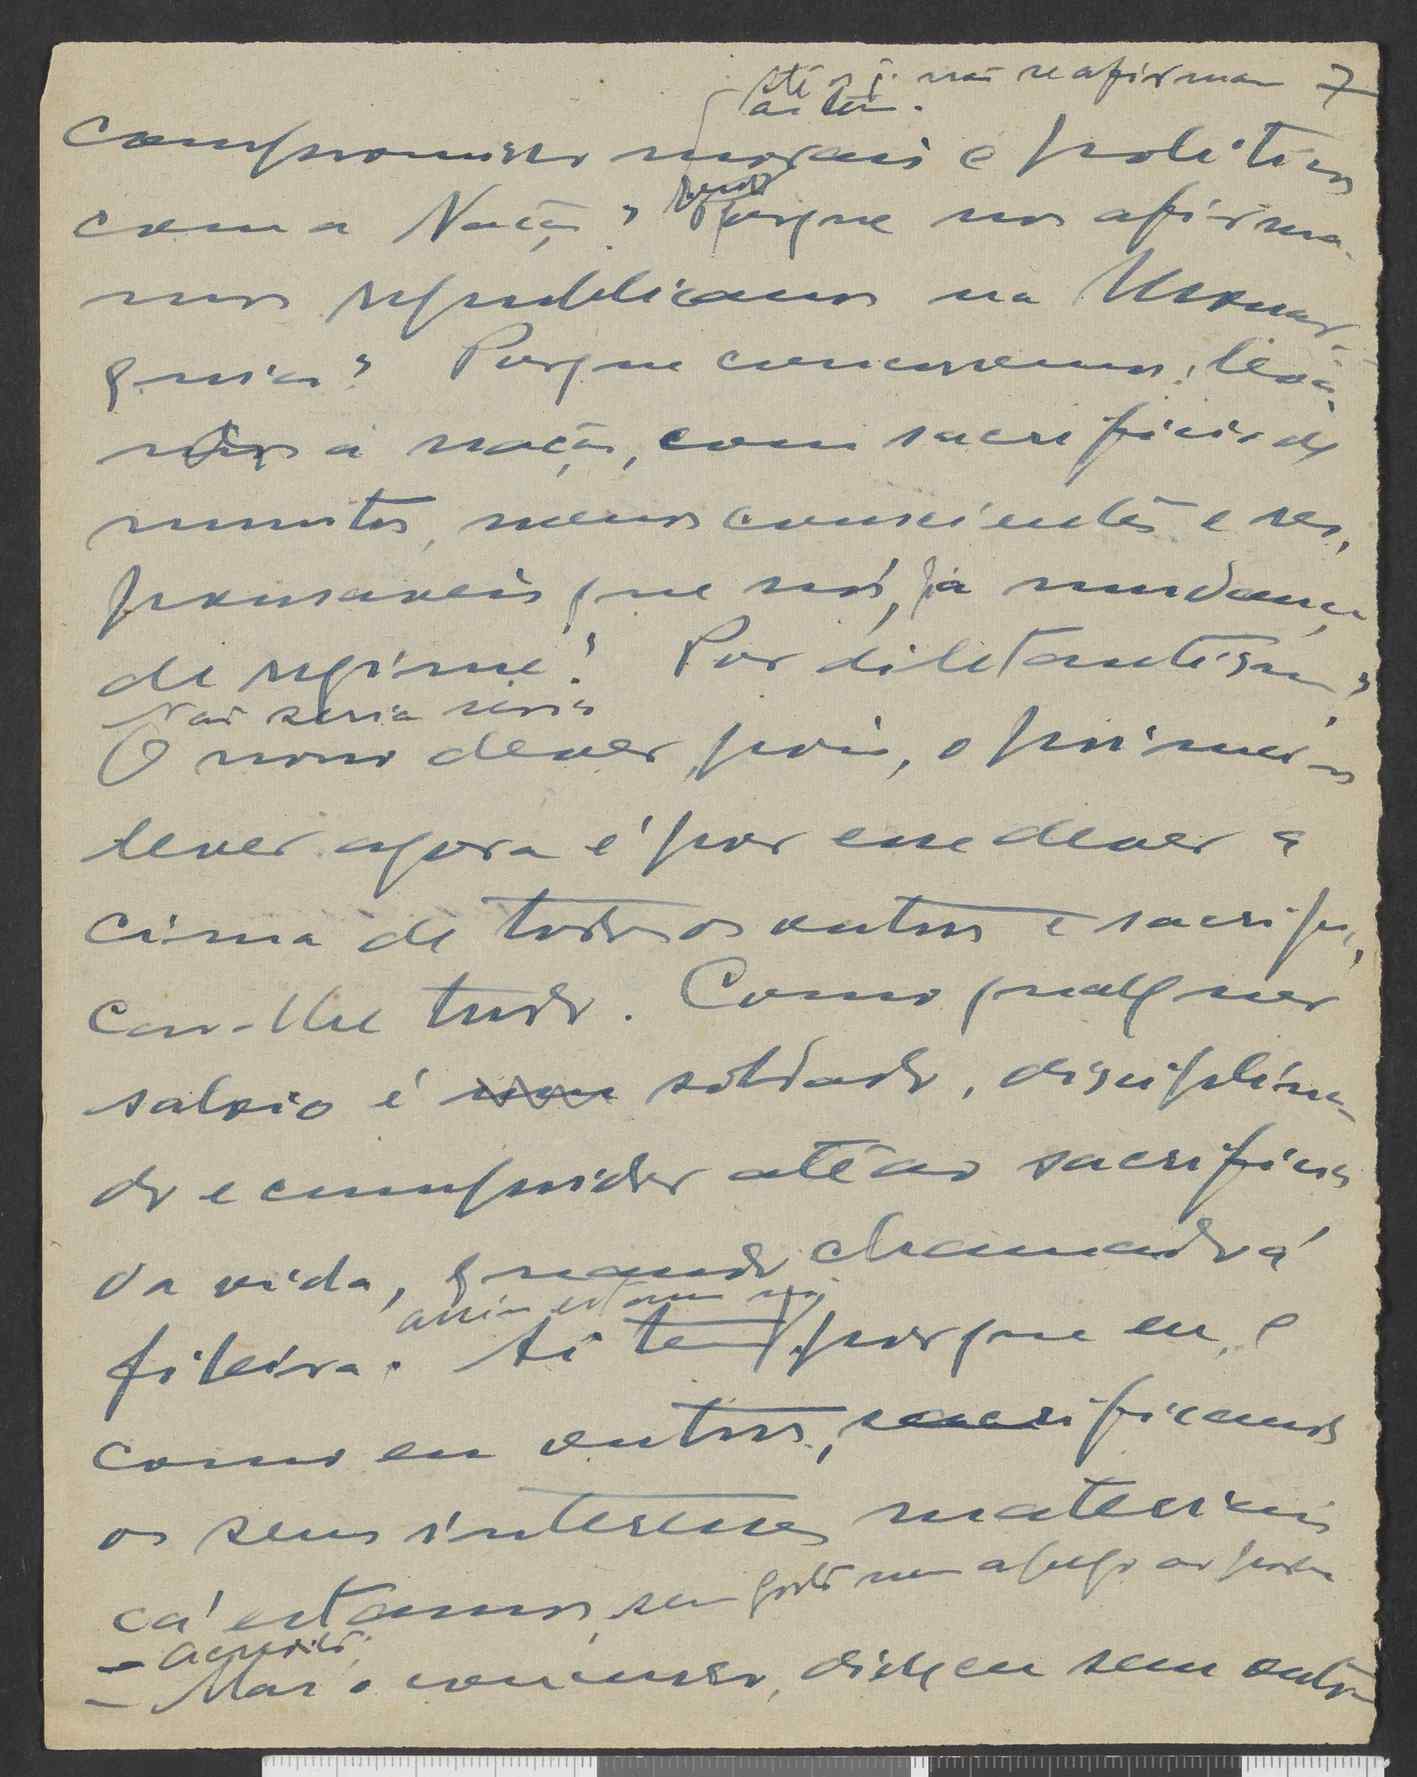 até q. não reafirmam 7
compromisso morais e politicos
com a Nação? Porque nos afirma-
mos republicanos na Monar-
quia? Porque concorremos, levá-
mos a nação, com sacrificio de
muitos, menos conscientes e res-
ponsaveis que nós, já mudança
de regime? Por diletantismo?
Não seria sério
O nosso dever, pois, o primeiro
dever agora é pôr esse dever a
cima de todos os outros e sacrifi-
car-lhe tudo. Como qualquer
salvio é um soldado, disciplina-
do e cumpridor até ao sacrificio
da vida, quando chamado á
assim estamos nós
fileira. Ai tem porque eu, e
como eu outros, sacrificamos
os seus interesses materiais
cá estamos, sem gosto nem apego ao poder
- Acredito,
- Mas o concurso, disse eu sem outro